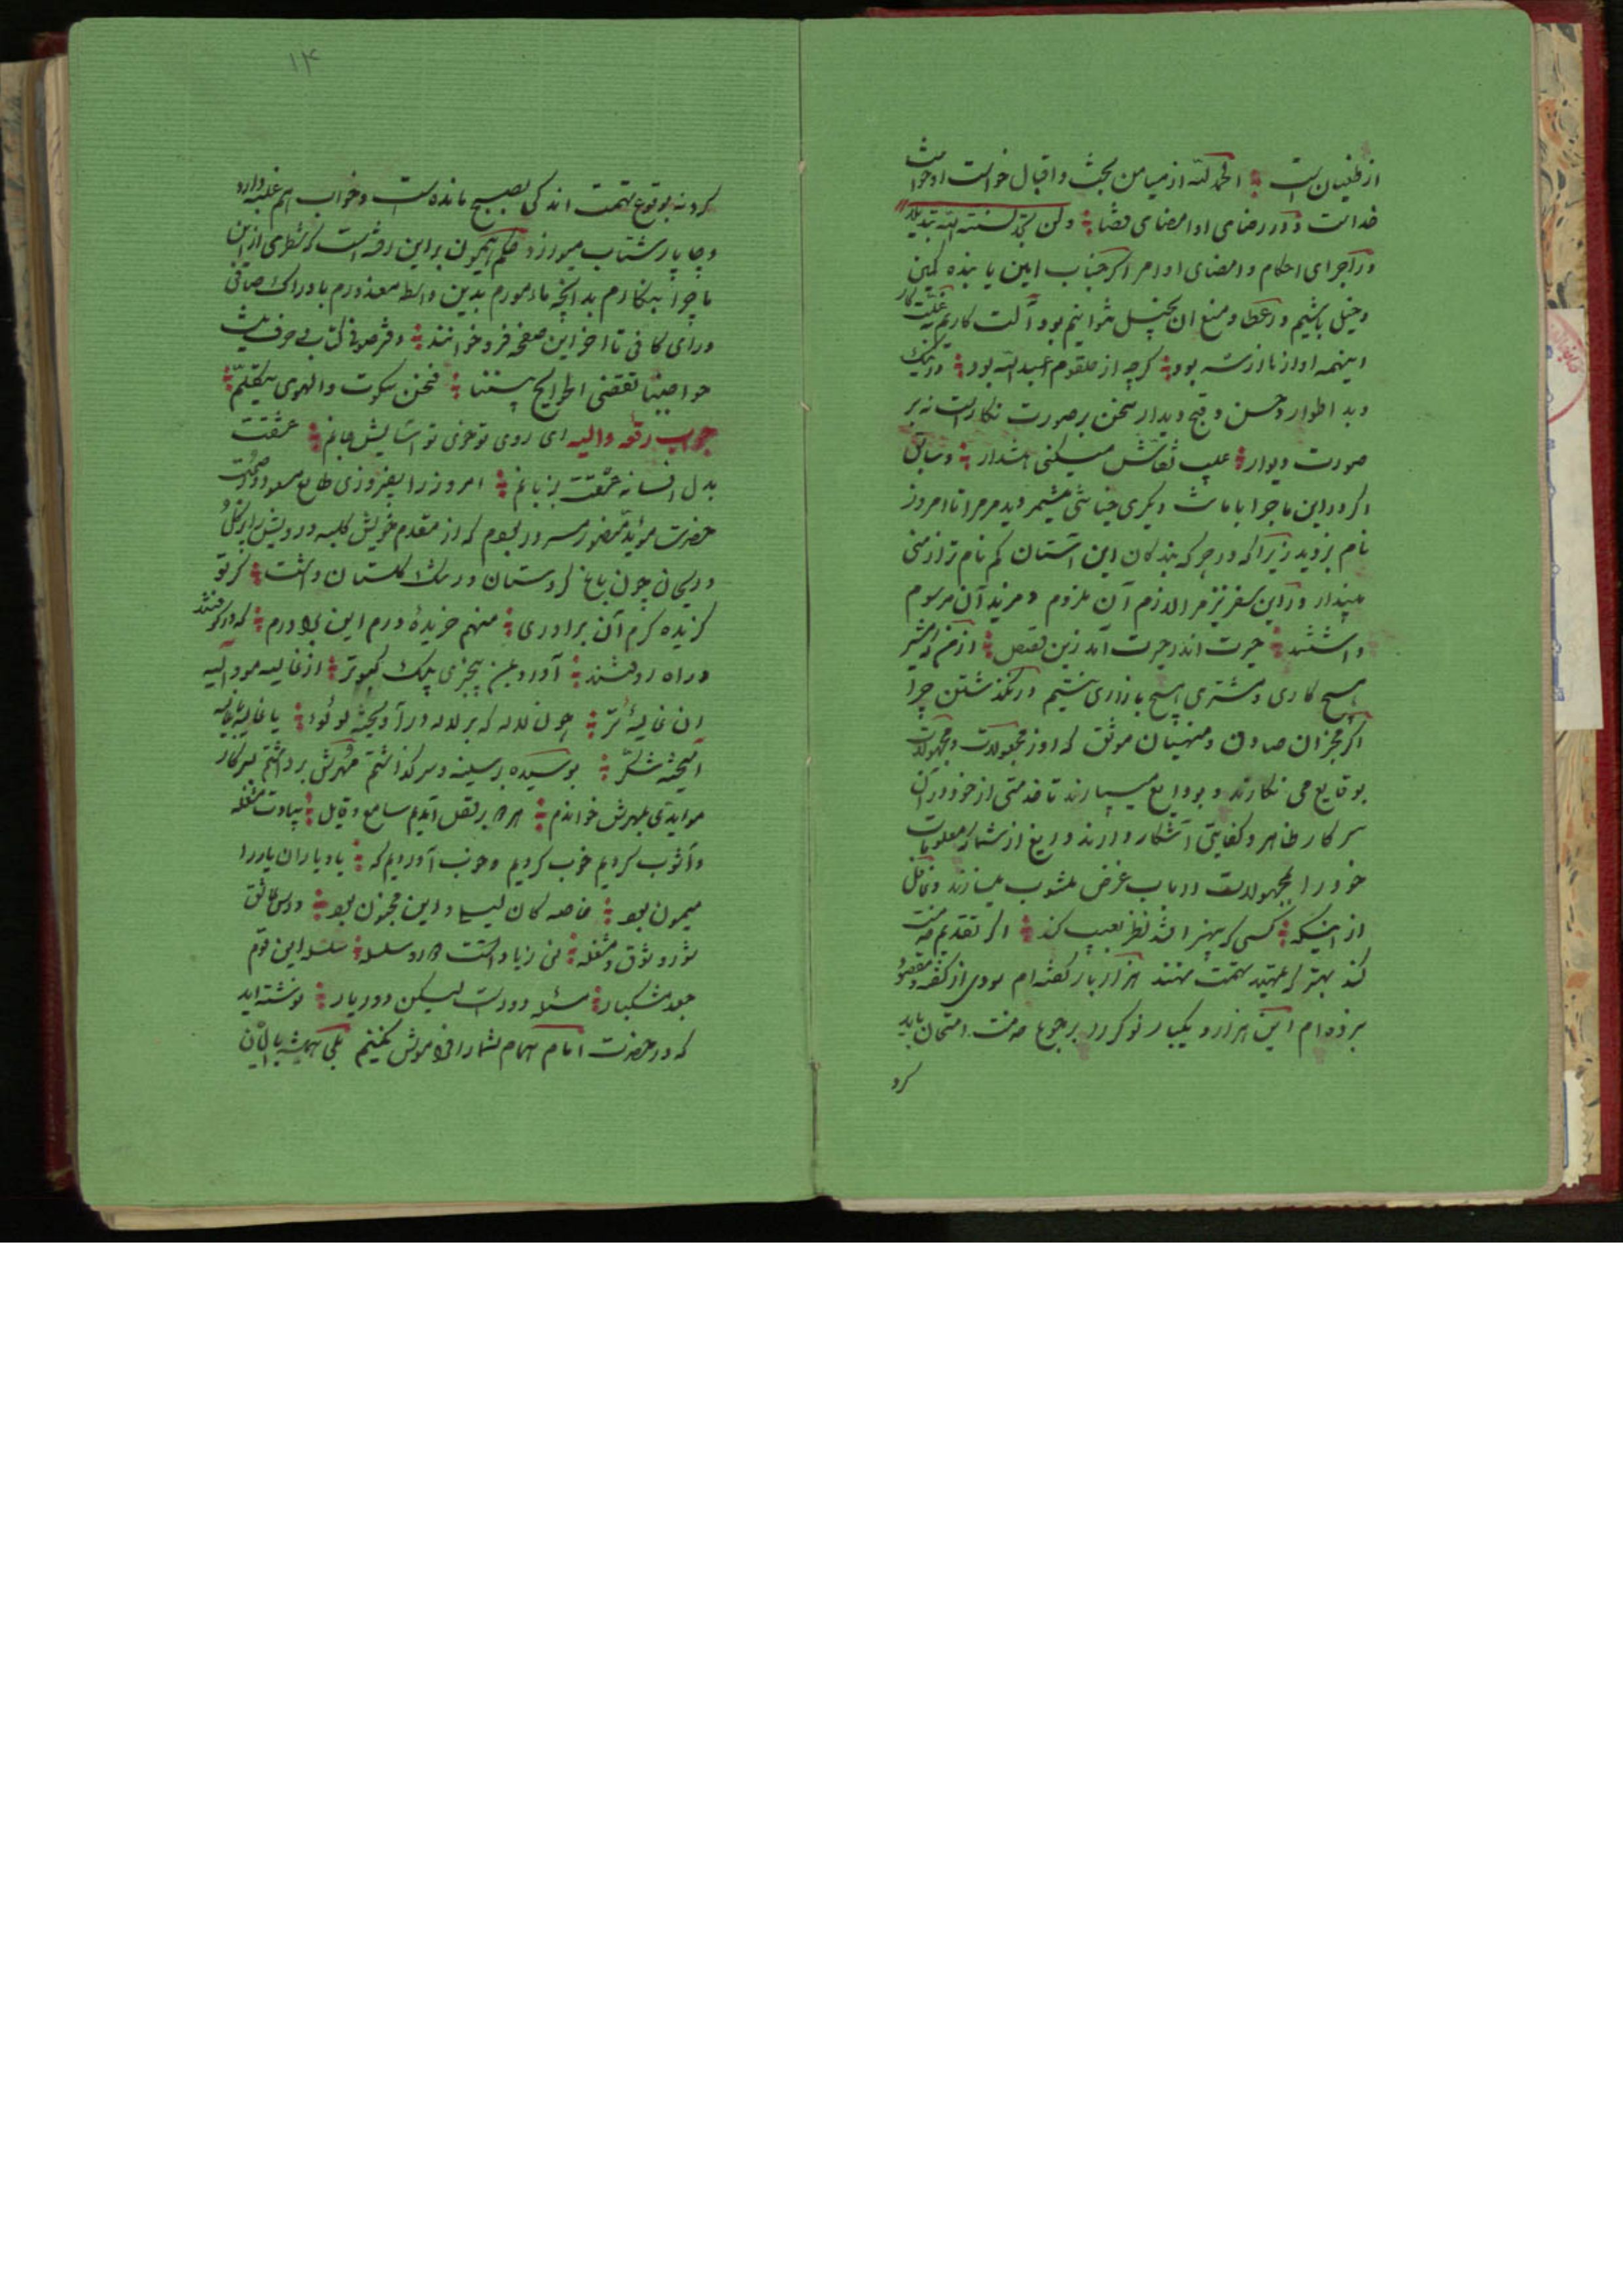 از طغیان است ؛ الحمد لله از میامن بخت و اقبال خواست او خواست
خداست و در رضای او امضای قضا ؛ و لن تجد لسنة الله تبدیلا
در اجرای احکام و امضای اوامر اگر جناب امین یا بنده کمین
دخیل باشیم و در عطا و منع ان بخیل نتوانیم بود آلت کاریم
اینهمه اواز نا از شه بود ؛ گرچه از حلقوم عبدالله بود ؛ و در نیک
و بد اطوار و حسن و قبح دیدار سخن بر صورت نکار است نه بر
صورت دیوار ؛ عیب نقاش میکنی هشدار ؛ و سابق
اکر در این ماجرا با ماش دیکری جنایتی میشمردید مرا تا امروز
نام بزوید زیرا که در جرکه بندکان این آستان کم نام تر از منی
مپندار و در این سفر نیز مرا لازم آن ملزوم و مزید آن مرسوم
داشتند ؛ حیرت اندر حیرت آمد زین قصص ؛
هیچ کاری و مشتری هیچ بازاری نیستیم در نکذشتن چرا
اکر مخبران صادق و منهیان موثق که اوز مجعولات و مجهولات
بوقایع می نکارند و بودایع میسپارند تا خدمتی از خود در آن
سرکار ظاهر و کفایتی آشکار دارند دریغ از شمار معلومات
خود را مجهولات و ارباب غرض مشوب میسازند و غافل
از اینکه ؛ کسی که بهنر افتد نظر بعیب کند ؛ اکر تقدیم خدمت
کند بهتر که تمهید تهمت نهند هزار بار کفته ام سودی از کفته و مقصود
برده ام این هزار و یکبار نوکر را برجوع خدمت امتحان باید
کرد
۱۴
کرد نه بوقوع تهمت اندکی بصبح مانده است و خواب هم غلبه دارد
و چاپار شتاب میورزد حکم همیون بر این رفته است که شطری از این
ماجرا بنکارم بد انچه مامورم بدین واسطه معذورم با دراک صافی
و رای کافی تا اخر این صفحه فرو خوانند ؛
حواجبنا تقضی الحوایج بیننا ؛ فنحن سکوت والهوی یتکلم ؛
جواب رقعه والیه ای روی تو خوی تو آسایش جانم ؛ عشقت
بدل افسانه عشقت بزبانم ؛ امروز را بفیروزی طالع مسعود و صحبت
حضرت موید منصور مسرور بودم که از مقدم خویش کلبه درویش را پر کل
و ریحان چون باغ کردستان و رشک کلستان داشت ؛ کر تو
کزیده کرم آن برادری ؛ منهم خریده درم این برادرم ؛
در راه رو هشتند ؛ آورد بمن بیخبری پیک کبوتر ؛ از غالیه مو دالیه
ان غالیه تر ؛ چون لاله که بر لاله در آویخته لولو ؛ یا غالیه با غالیه
آمیخته شکر ؛ بوسیده بر سینه و سر کذاشتم مهرش برداشتم بسر کار
موایدی بمهرش خواندم ؛ هر دو برقص آمدیم سامع و قایل ؛
و آشوب کردیم خوب کردیم و خوب آوردیم که ؛ یاد یاران یار را
میمون بود ؛ خاصه کان لیلی و این مجنون بود ؛ درس عاشق
شور و شوق و مشغله ؛ نی زیادات است و در سلسله ؛ سلسله این قوم
جعد مشکبار ؛ مسئله دور است لیکن دور یار ؛ نوشته اید
که در حضرت امام همام شما را فراموش نکنیم بلی همیشه با ایشان